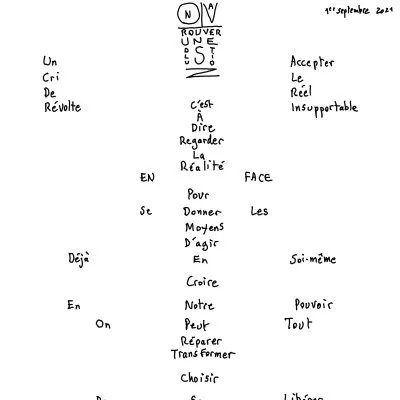 1er septembre 2021
ON VA
TROUVER
UNE
SOLUTION
Un
Cri
De
Révolte
Accepter
Le
Réel
Insupportable
C'est
À
Dire
Regarder
La
Réalité
EN FACE
Pour
Se Donner Les
Moyens
D'agir
Déjà En Soi-même
Croire
En Notre Pouvoir
On Peut Tout
Réparer
Transformer
Choisir